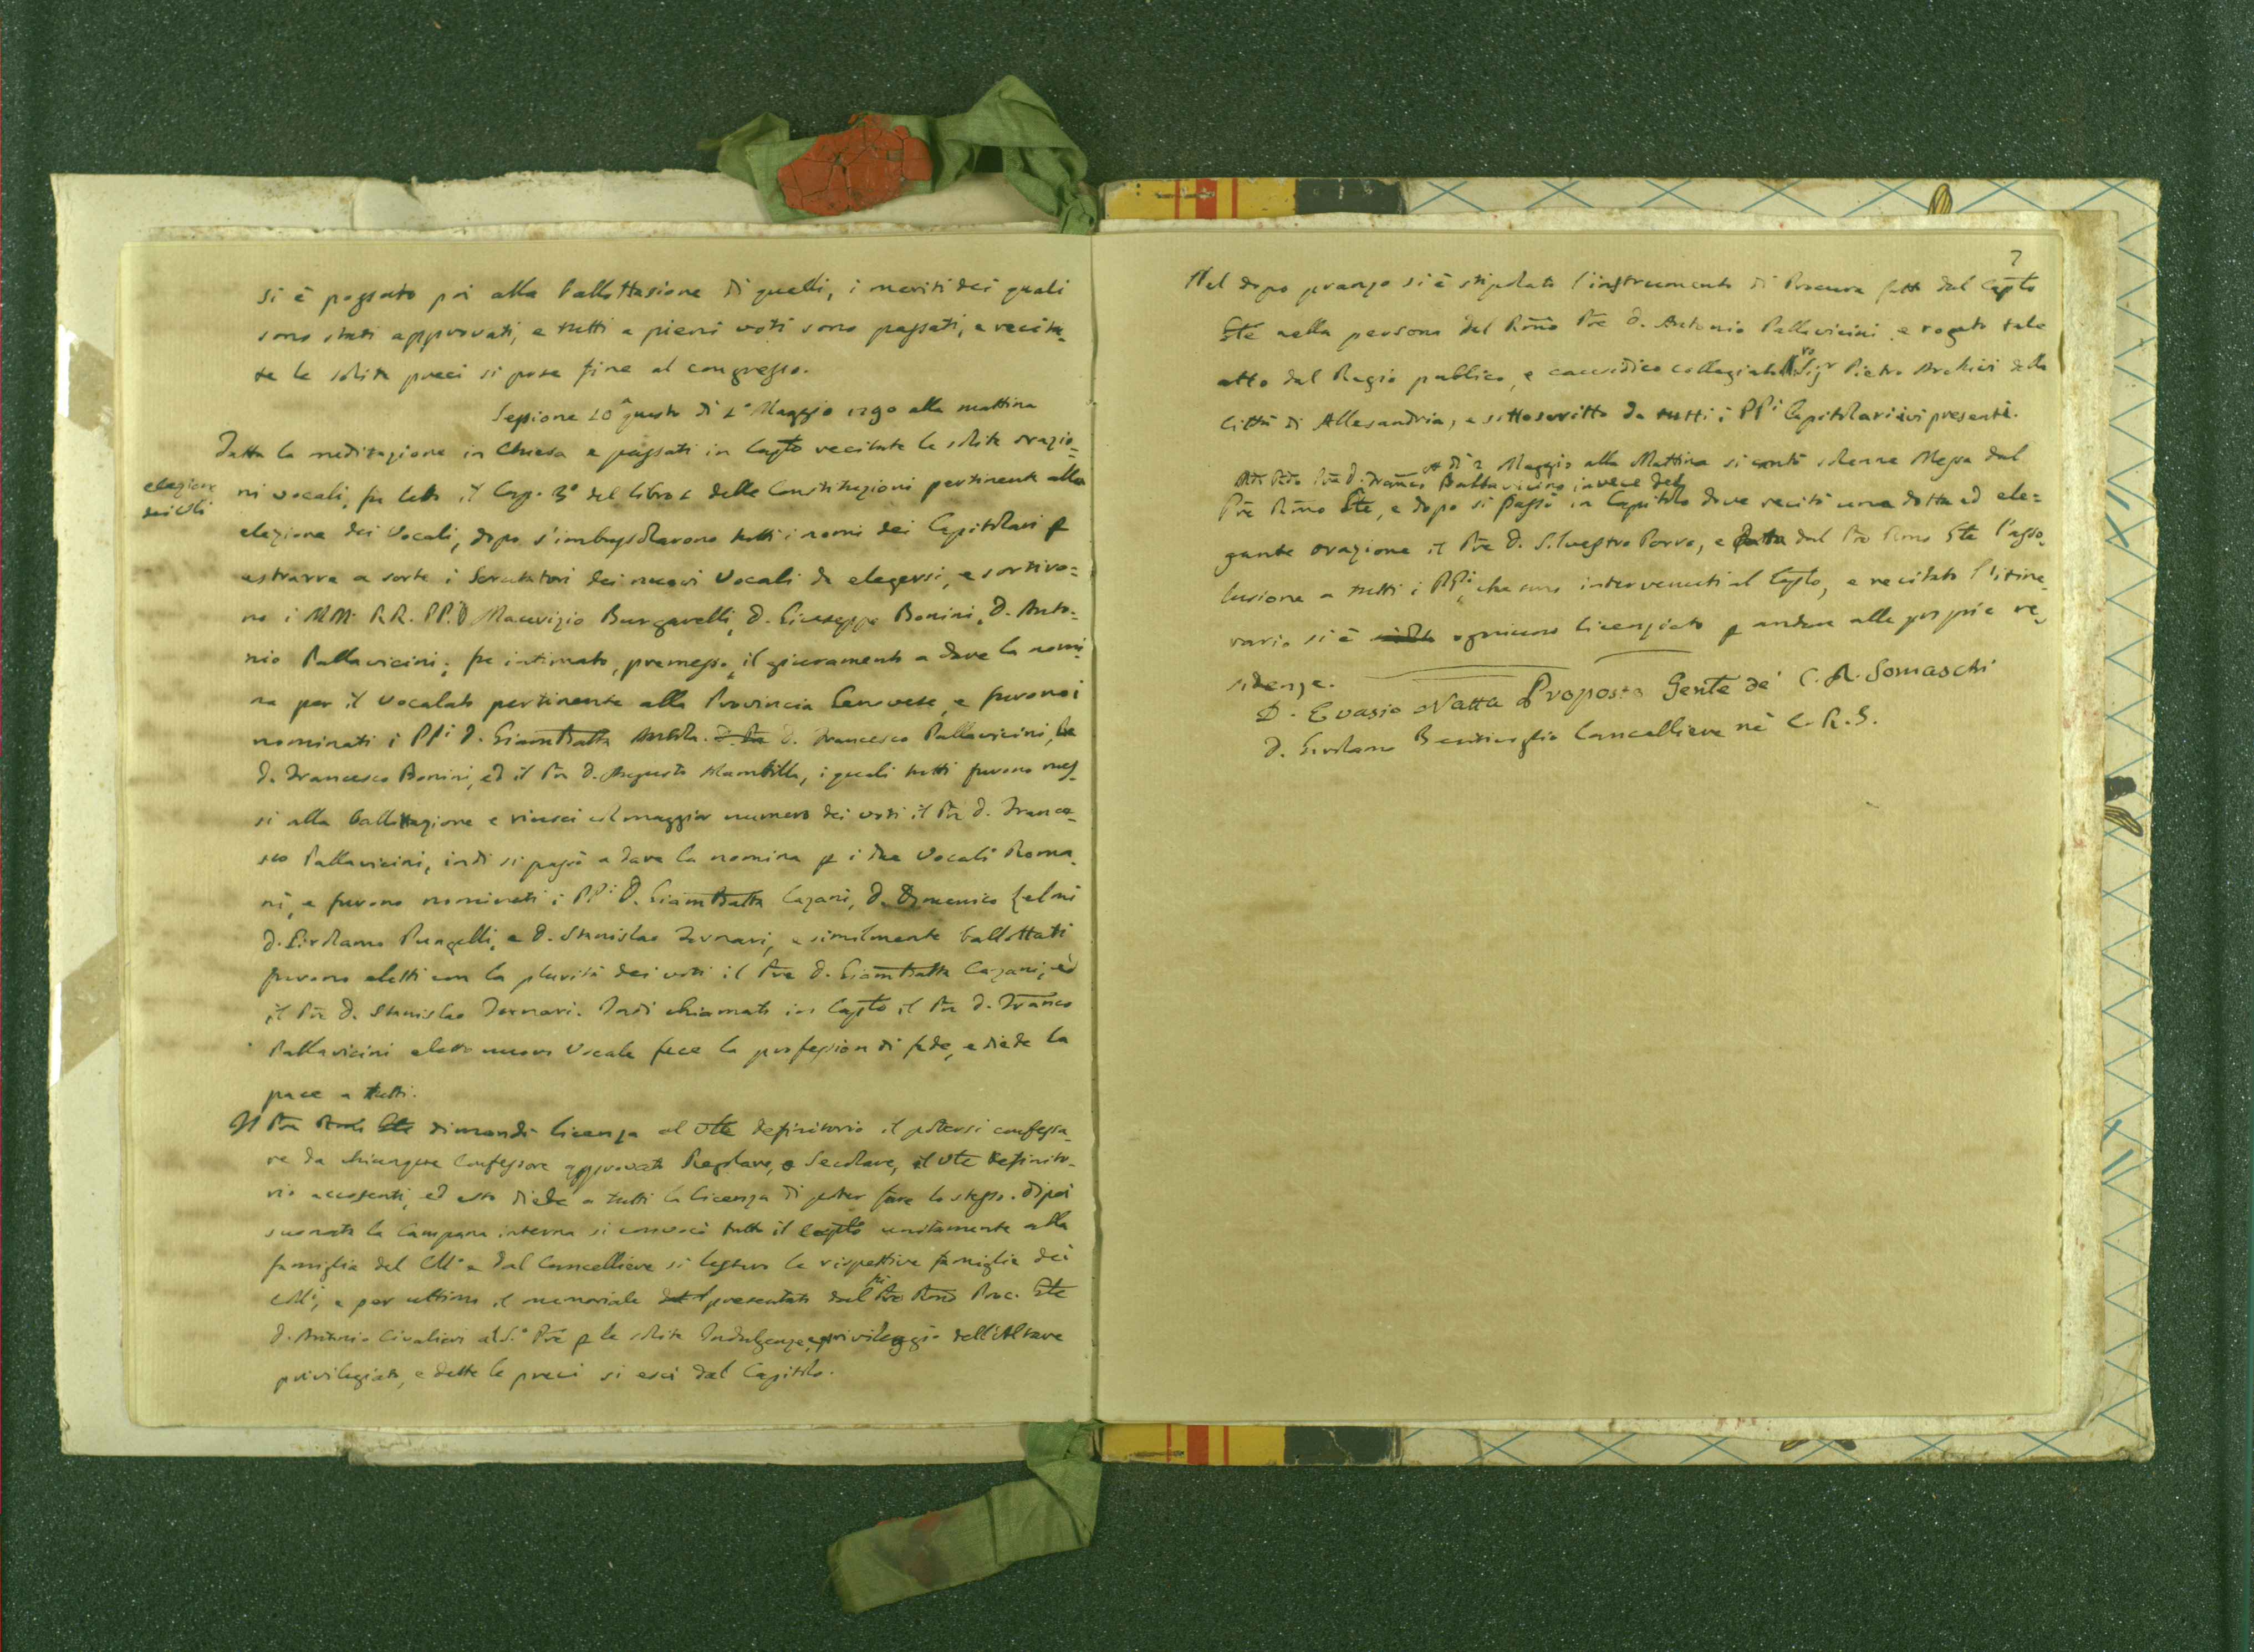 si è passato poi alla ballottazione di quelli, i meriti dei quali
sono stati approvati, e tutti a pieni voti sono passati, e recita-
te le solite preci si pose fine al congresso.
Sessione 10ª questo dì 1° Maggio 1790 alla mattina
Fatta la meditazione in Chiesa e passati in Capto recitate le solite orazio=
elezione
dei Vli
ni vocali, fu letto il Cap. 3° del libro 1 delle Constituzioni pertinente alla
elezione dei Vocali, dopo s'imbussolarono tutti i nomi dei Capitolari p
estrarre a sorte i Scrutatori dei nuovi Vocali da elegersi, e sortiro=
no i MM. RR. PP. D Maurizio Burgarelli, D. Giuseppe Bonini, D. Anto=
nio Pallavicini; fu intimato, premesso il giuramento a dare la nomi-
na per il Vocalato pertinente alla Provincia Genovese, e furono i
nominati i PPi D. GiamBatta D. Francesco Pallavicini,
D. Francesco Bonini, ed il Pre D. Augusto Mambilla, i quali tutti furono mes-
si alla ballottazione e riuscì col maggior numero dei voti il Pre D. France-
sco Pallavicini, indi si passò a dare la nomina p i due Vocali Roma-
ni, e furono nominati i PPi D. GiamBatta Cazani, D. Domenico
D. Girolamo Pungelli, e D. Stanislao Fornari, e similmente ballottati
furono eletti con la plurità dei voti il Pre D. GiamBatta Cazani, ed
il Pre D. Stanislao Fornari. Indi chiamato in Capto il Pre D. Franco
Pallavicini eletto nuovo Vocale fece la professione di fede, e diede la
pace a tutti.
Il Pre Gte dimandò licenza al Vle definitorio il potersi confessa-
re da chiunque Confessore approvato Regolare, o Secolare, il Vle definito-
rio accosentì, ed esso diede a tutti la licenza di poter fare lo stesso. dipoi
suonata la Campana interna si convocò tutto il Capto unitamente alla
famiglia del Col° e dal Cancelliere si lessero le rispettive famiglie dei
Coli, e per ultimo il memoriale presentato dal Pre Rmo Proc. Gte
D. Antonio Civalieri al S.° Pre p le solite Indulgenze, e privileggio dell'Altare
privilegiato, e dette le preci si escì dal Capitolo.
7
Nel dopo pranzo si è stipolato l'instrumento di Procura fatto dal Capto
Gte nella persona del Rmo Pre D. Antonio Pallavicini, e rogato tale
atto dal Regio publico, e causidico collegiato Sigr Pietro Archivi della
Città di Allesandria, e sottoscritto da tutti i PPi Capitolari ivi presenti.
A dì 2 Maggio alla Mattina si cantò solenne Messa dal
Pre D. Franco Pallavicino invece del
Pre Rmo Gte, e dopo si passò in Capitolo dove recitò una dotta ed ele=
gante orazione il Pre D. Silvestro Porro, e data dal Pre Rmo Gte l'asso-
luzione a tutti i PPi, che sono intervenuti al Capto, e recitato l'itine-
rario si è ogniuno licenziato p andare alle proprie re-
sidenze.
D. Evasio Natta Proposto Gente de' C. R. Somaschi
D. Girolamo Bentivoglio Cancelliere nè C. R. S.